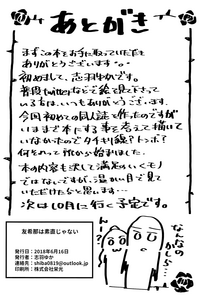 あとがき
まずこの本をお手に取っていただき
ありがとうございます。
初めまして、志羽ゆかです。
普段twitterなどで絵を見て下さって
いる方は、いつもありがとうございます。
今回初めての同人誌を作ったのですが
いままで本にする事を考えて描いて
いなかったのでタチキリ線?トンボ?
何それ…って所から始まりました。
本の内容も決して満足のいくモノ
ではないですが、温かい目で見て
いただけたらと思います…
次は10月に行く予定です。
なんなの
かしら…
ん〜?
友希那は素直じゃない
発行日：2018年6月16日
発行者：志羽ゆか
連絡先：shiba0819@outlook.jp
印刷所：株式会社栄光